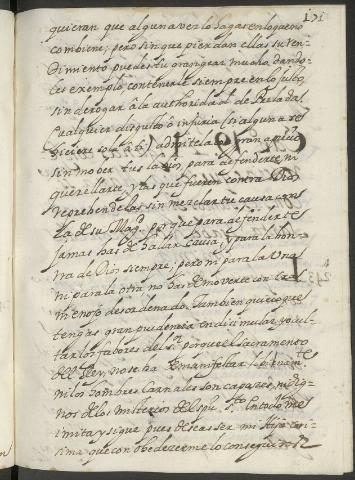 171
quieran que alguna vez lo hagas en lo que no
combiene; pero sin que pierdan ellas su ren-
dimiento puedes tu grangear mucho, dando-
les exemplo, contenerte siempre en lo justo,
sin derogar â la authoridad de Perlada.
Cualquier disgusto ô injuria (si alguna se
hiciere sola a ti) admitela con gran aprecio
sin mover tus labios para defenderte, ni
querellarte, y las que fueren contra Dios
reprehendelas sin mezclar tu causa con
la de su Magd. porque para defenderte
jamas has de hallar causa, y para la hon-
rra de Dios siempre; pero ni para la una
ni para la otra no has de moverte con
enojo desordenado. Tambien quiero que
tengas gran prudencia en disimular, y ocul-
tar los fabores del Sr. porque el sacramento
del Rey, no se ha de manifestar
ni los hombres carnales son capaces, ni dig-
nos de los misterios del spu Sto. En todo me
imita y sigue, pues deseas ser mi Hija cari-
sima que con obedecerme lo conseguiras